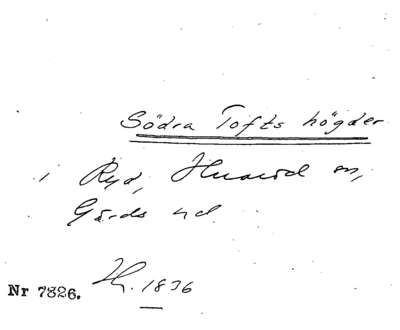 Södra Tofts högder
i Ryd, Huaröd sn,
Gärds hd.
Nr 7326. Th. 1836